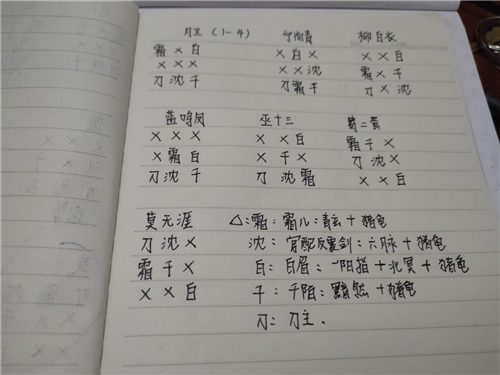 月 (1-4) 青 柳白衣
霜 × 白 × 白 × × × 白
× × × × × 沈 霜 × 千
刀 沈 千 刀 霜 千 刀 × 沈
蓝鸣凤 巫十三 葛二蛋
× × × × × 白 霜 千 ×
× 霜 白 × 千 × 刀 沈 ×
刀 沈 千 刀 沈 霜 × × 白
莫无涯 △:霜:霜儿:青云+猪龟
刀 沈 × 沈:官配反震剑:六脉+猪龟
霜 千 × 白:白眉:一阳指+北冥+猪龟
× × 白 千:千陌:黯然+猪龟
刀:刀主.